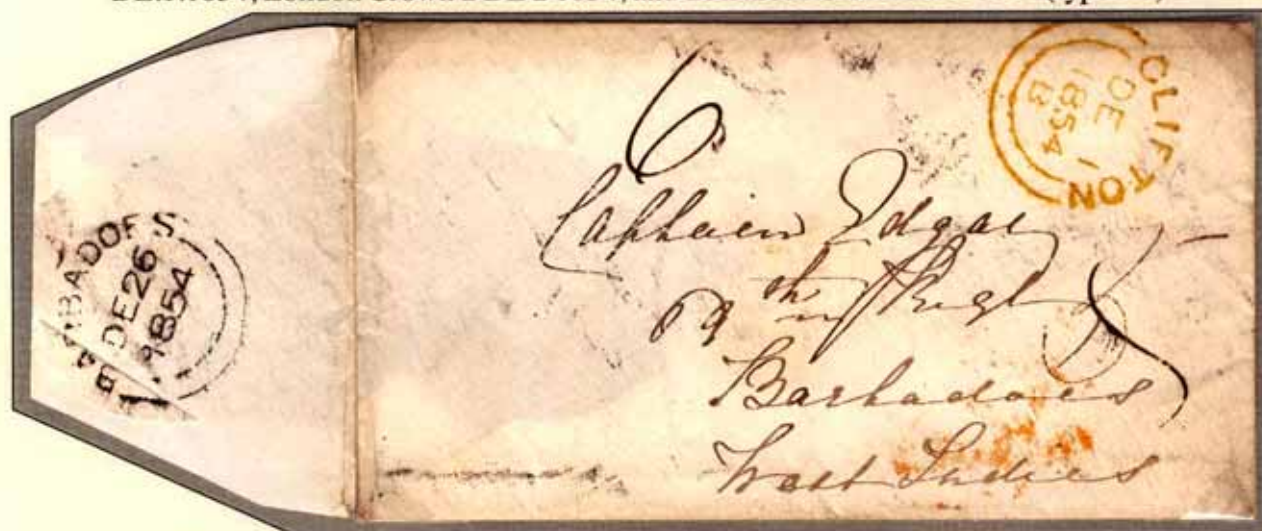 BARBADOES
DE 26
1854
CLIFTON
DE 1
1854
B
6
Captain Edgar
69th Regt
Barbadoes
West Indies